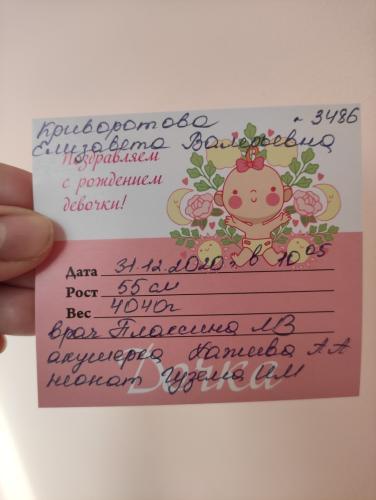 Криворотова № 3486
Елизавета Валерьевна
Поздравляем
с рождением
девочки!
Дата 31.12.2020 г. в 10 05
Рост 55 см
Вес 4040г
врач Плассина ЛВ
акушерка Кажева АА
неонат Гузема ИМ
Дочка